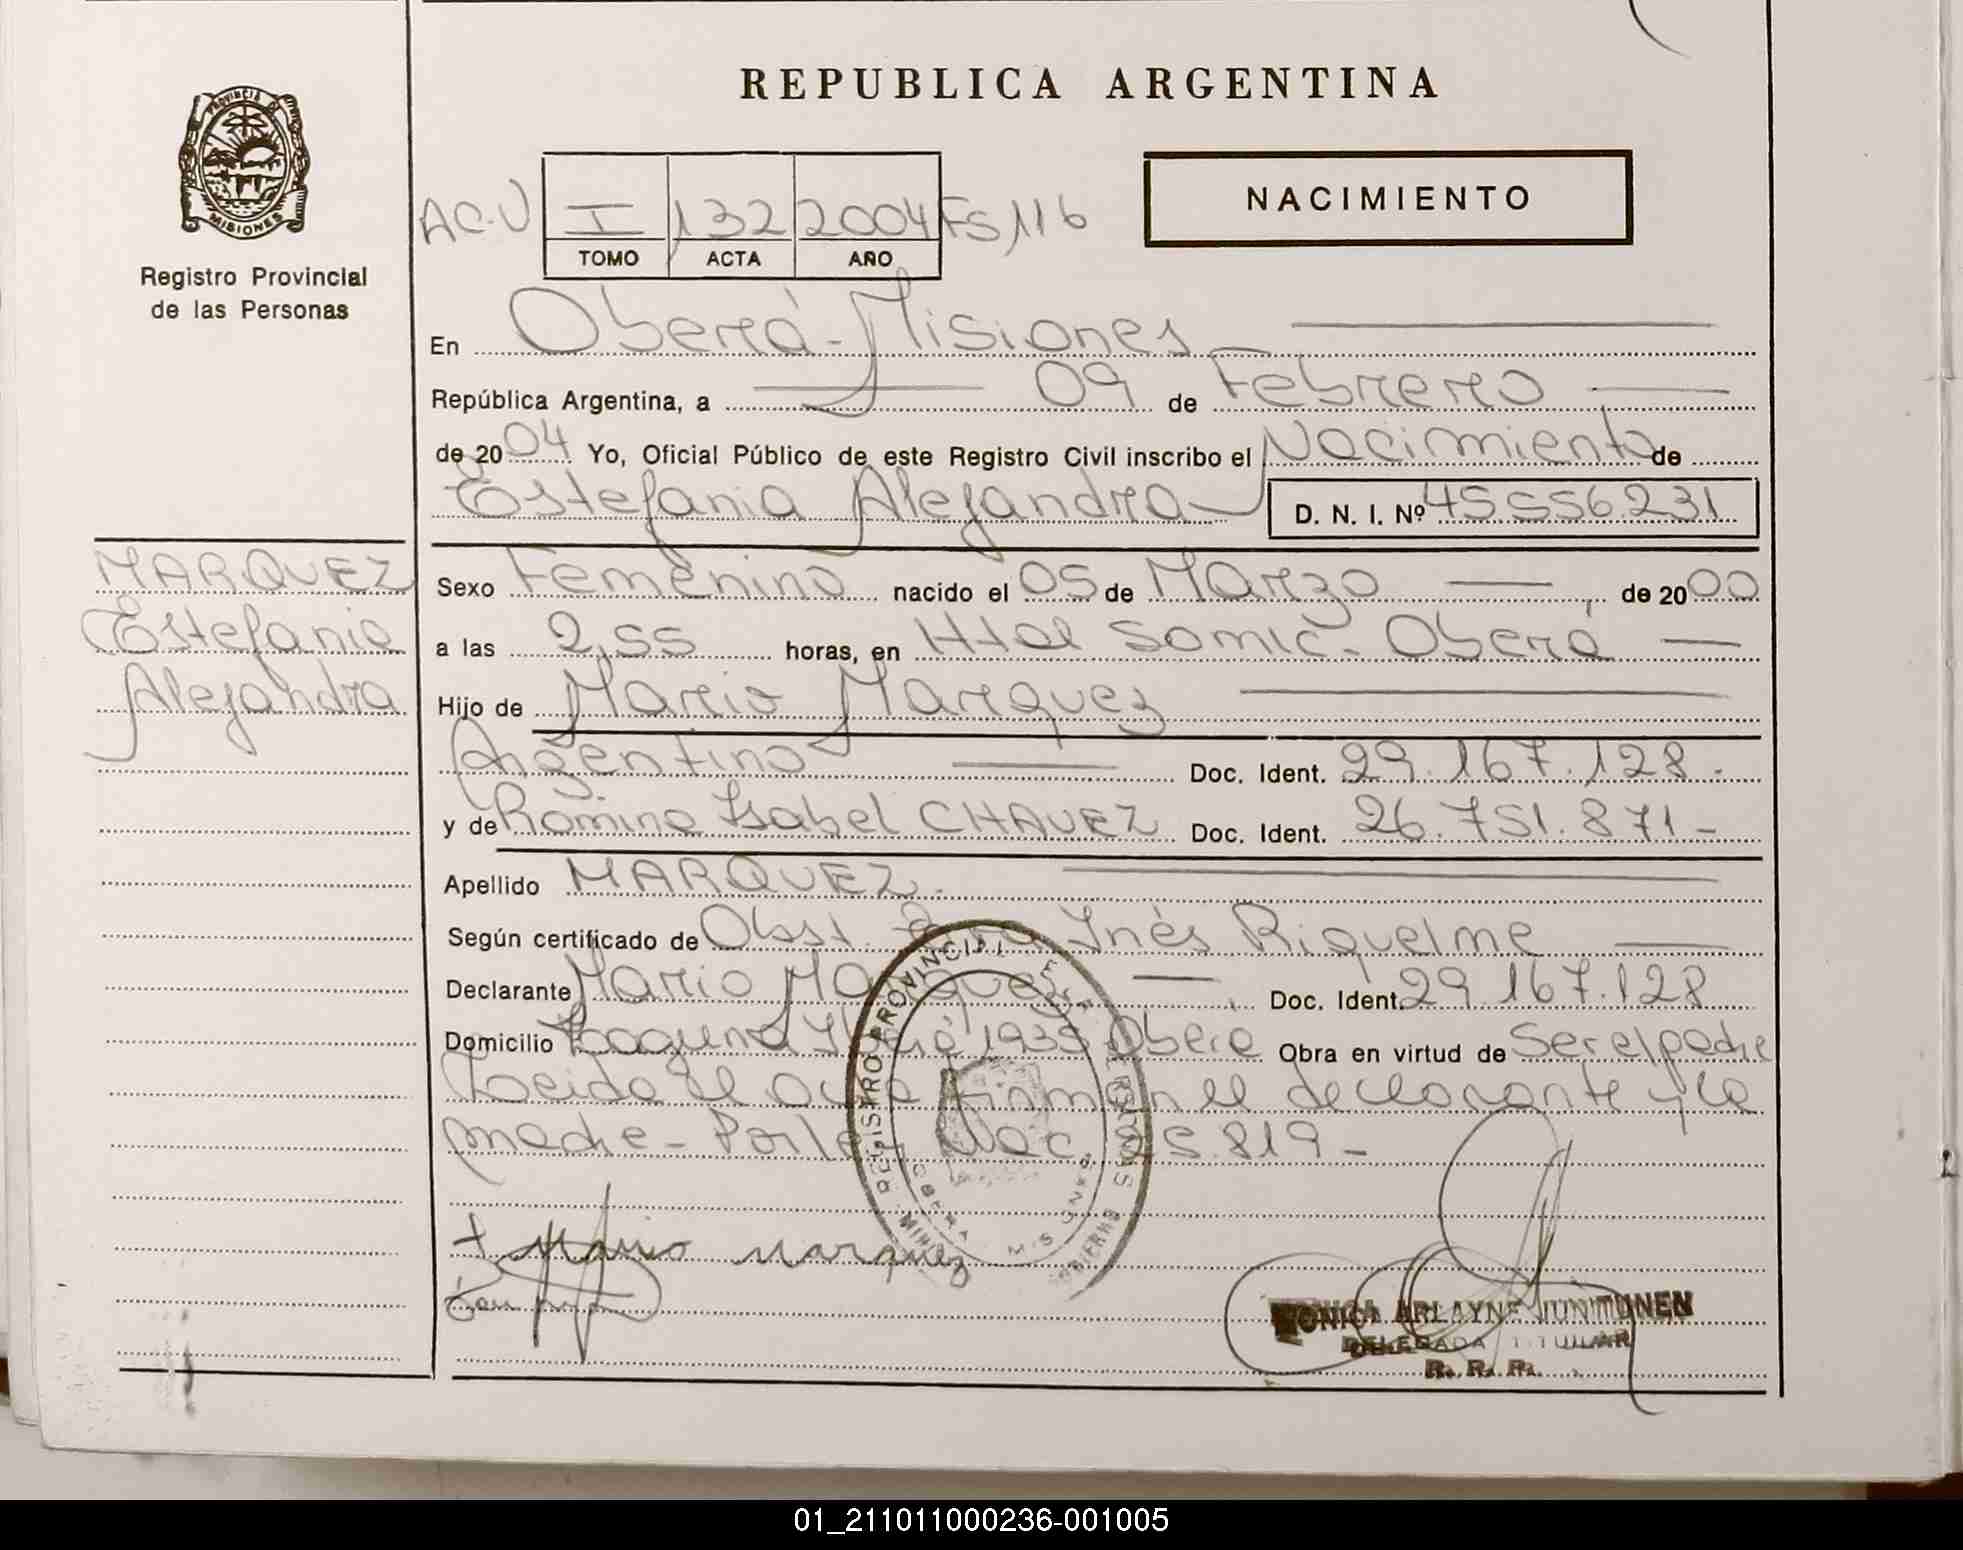 REPUBLICA ARGENTINA
PROVINCIA DE
MISIONES
Registro Provincial
de las Personas
NACIMIENTO
AC.U I 132 2004 FS 116
TOMO ACTA AÑO
En Oberá - Misiones
República Argentina, a 09 de Febrero
de 2004 Yo, Oficial Público de este Registro Civil inscribo el Nacimiento de
Estefania Alejandra D. N. I. Nº 45556231
MARQUEZ
Estefania
Alejandra
Sexo Femenino nacido el 05 de Marzo de 2000
a las 2,55 horas, en Htal Samic - Oberá
Hijo de Mario Marquez
Argentino Doc. Ident. 29.167.128.
y de Romina Isabel CHAVEZ Doc. Ident. 26.751.871-
Apellido MARQUEZ.
Según certificado de Obst. Inés Riquelme
Declarante Mario Marquez Doc. Ident. 29.167.128
Domicilio 1935 Obera Obra en virtud de Ser el padre
Leida el Acta firman el declarante y la
madre - Part. Nac. 819 -
REGISTRO PROVINCIAL DE LAS PERSONAS
OBERA MISIONES
+ Mario Marquez
ARLAYNE JUNTTUNEN
DELEGADA TITULAR
R. R. P.
01_211011000236-001005